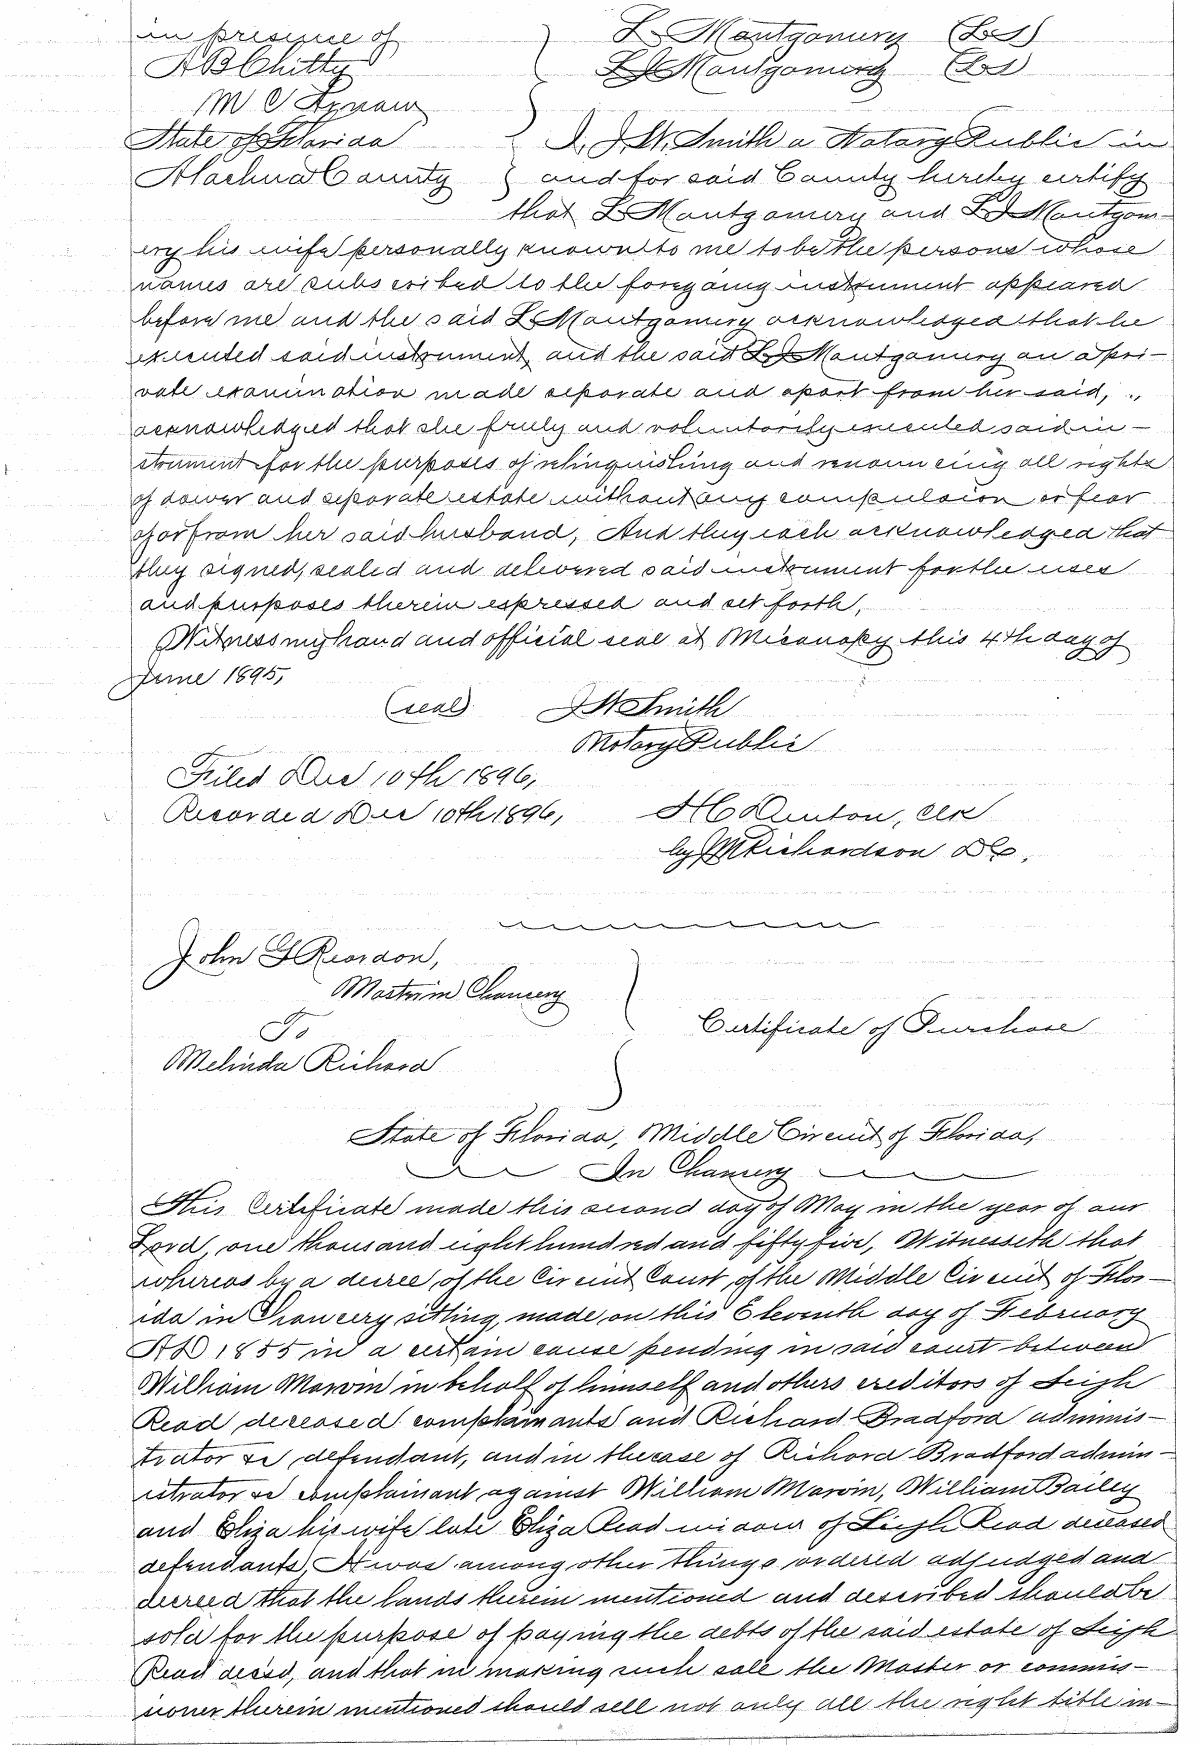 in presence of } L Montgomery (LS)
A B Chitty L J Montgomery (LS)
M C
State of Florida } I, J. W. Smith a Notary Public in
Alachua County } and for said County hereby certify
that L Montgomery and L J Montgom-
ery his wife personally known to me to be the persons whose
names are subscribed to the foregoing instrument appeared
before me and the said L Montgomery acknowledged that he
executed said instrument, and the said L J Montgomery on a pri-
vate examination made separate and apart from her said, "
acknowledged that she freely and voluntarily executed said in-
strument for the purposes of relinquishing and renouncing all rights
of dower and seporate estate without any compulsion or fear
of or from her said husband, And they each acknowledged that
they signed, sealed and delivered said instrument for the uses
and purposes therein expressed and set forth,
Witness my hand and official seal at Micanopy this 4th day of
June 1895,
(seal) J W Smith
Notary Public
Filed Dec 10th 1896,
Recorded Dec 10th 1896, H C Denton, Clk
by J M Richardson D C,
John G Reardon,
Master in Chancery
To } Certificate of Purchase
Melinda Richard
State of Florida, Middle Circuit of Florida,
In Chancery
This Certificate made this second day of May in the year of our
Lord, one thousand eight hundred and fifty five, Witnesseth that
whereas by a decree, of the Circuit Court, of the Middle Circuit of Flor-
ida in Chancery sitting, made, on this Eleventh day of February
AD 1855 in a certain cause pending in said court between
William Marvin in behalf of himself and others creditors of Leigh
Read deceased complainants and Richard Bradford adminis-
trator &c defendant, and in the case of Richard Bradford admin-
istrator &c complainant against William Marvin, William Bailey
and Eliza his wife late Eliza Read widow of Leigh Read deceased
defendants, It was among other things ordered adjudged and
decreed that the lands therein mentioned and described should be
sold for the purpose of paying the debts of the said estate of Leigh
Read decsd, and that in making such sale the Master or commis-
sioner therein mentioned should sell not only all the right title in-